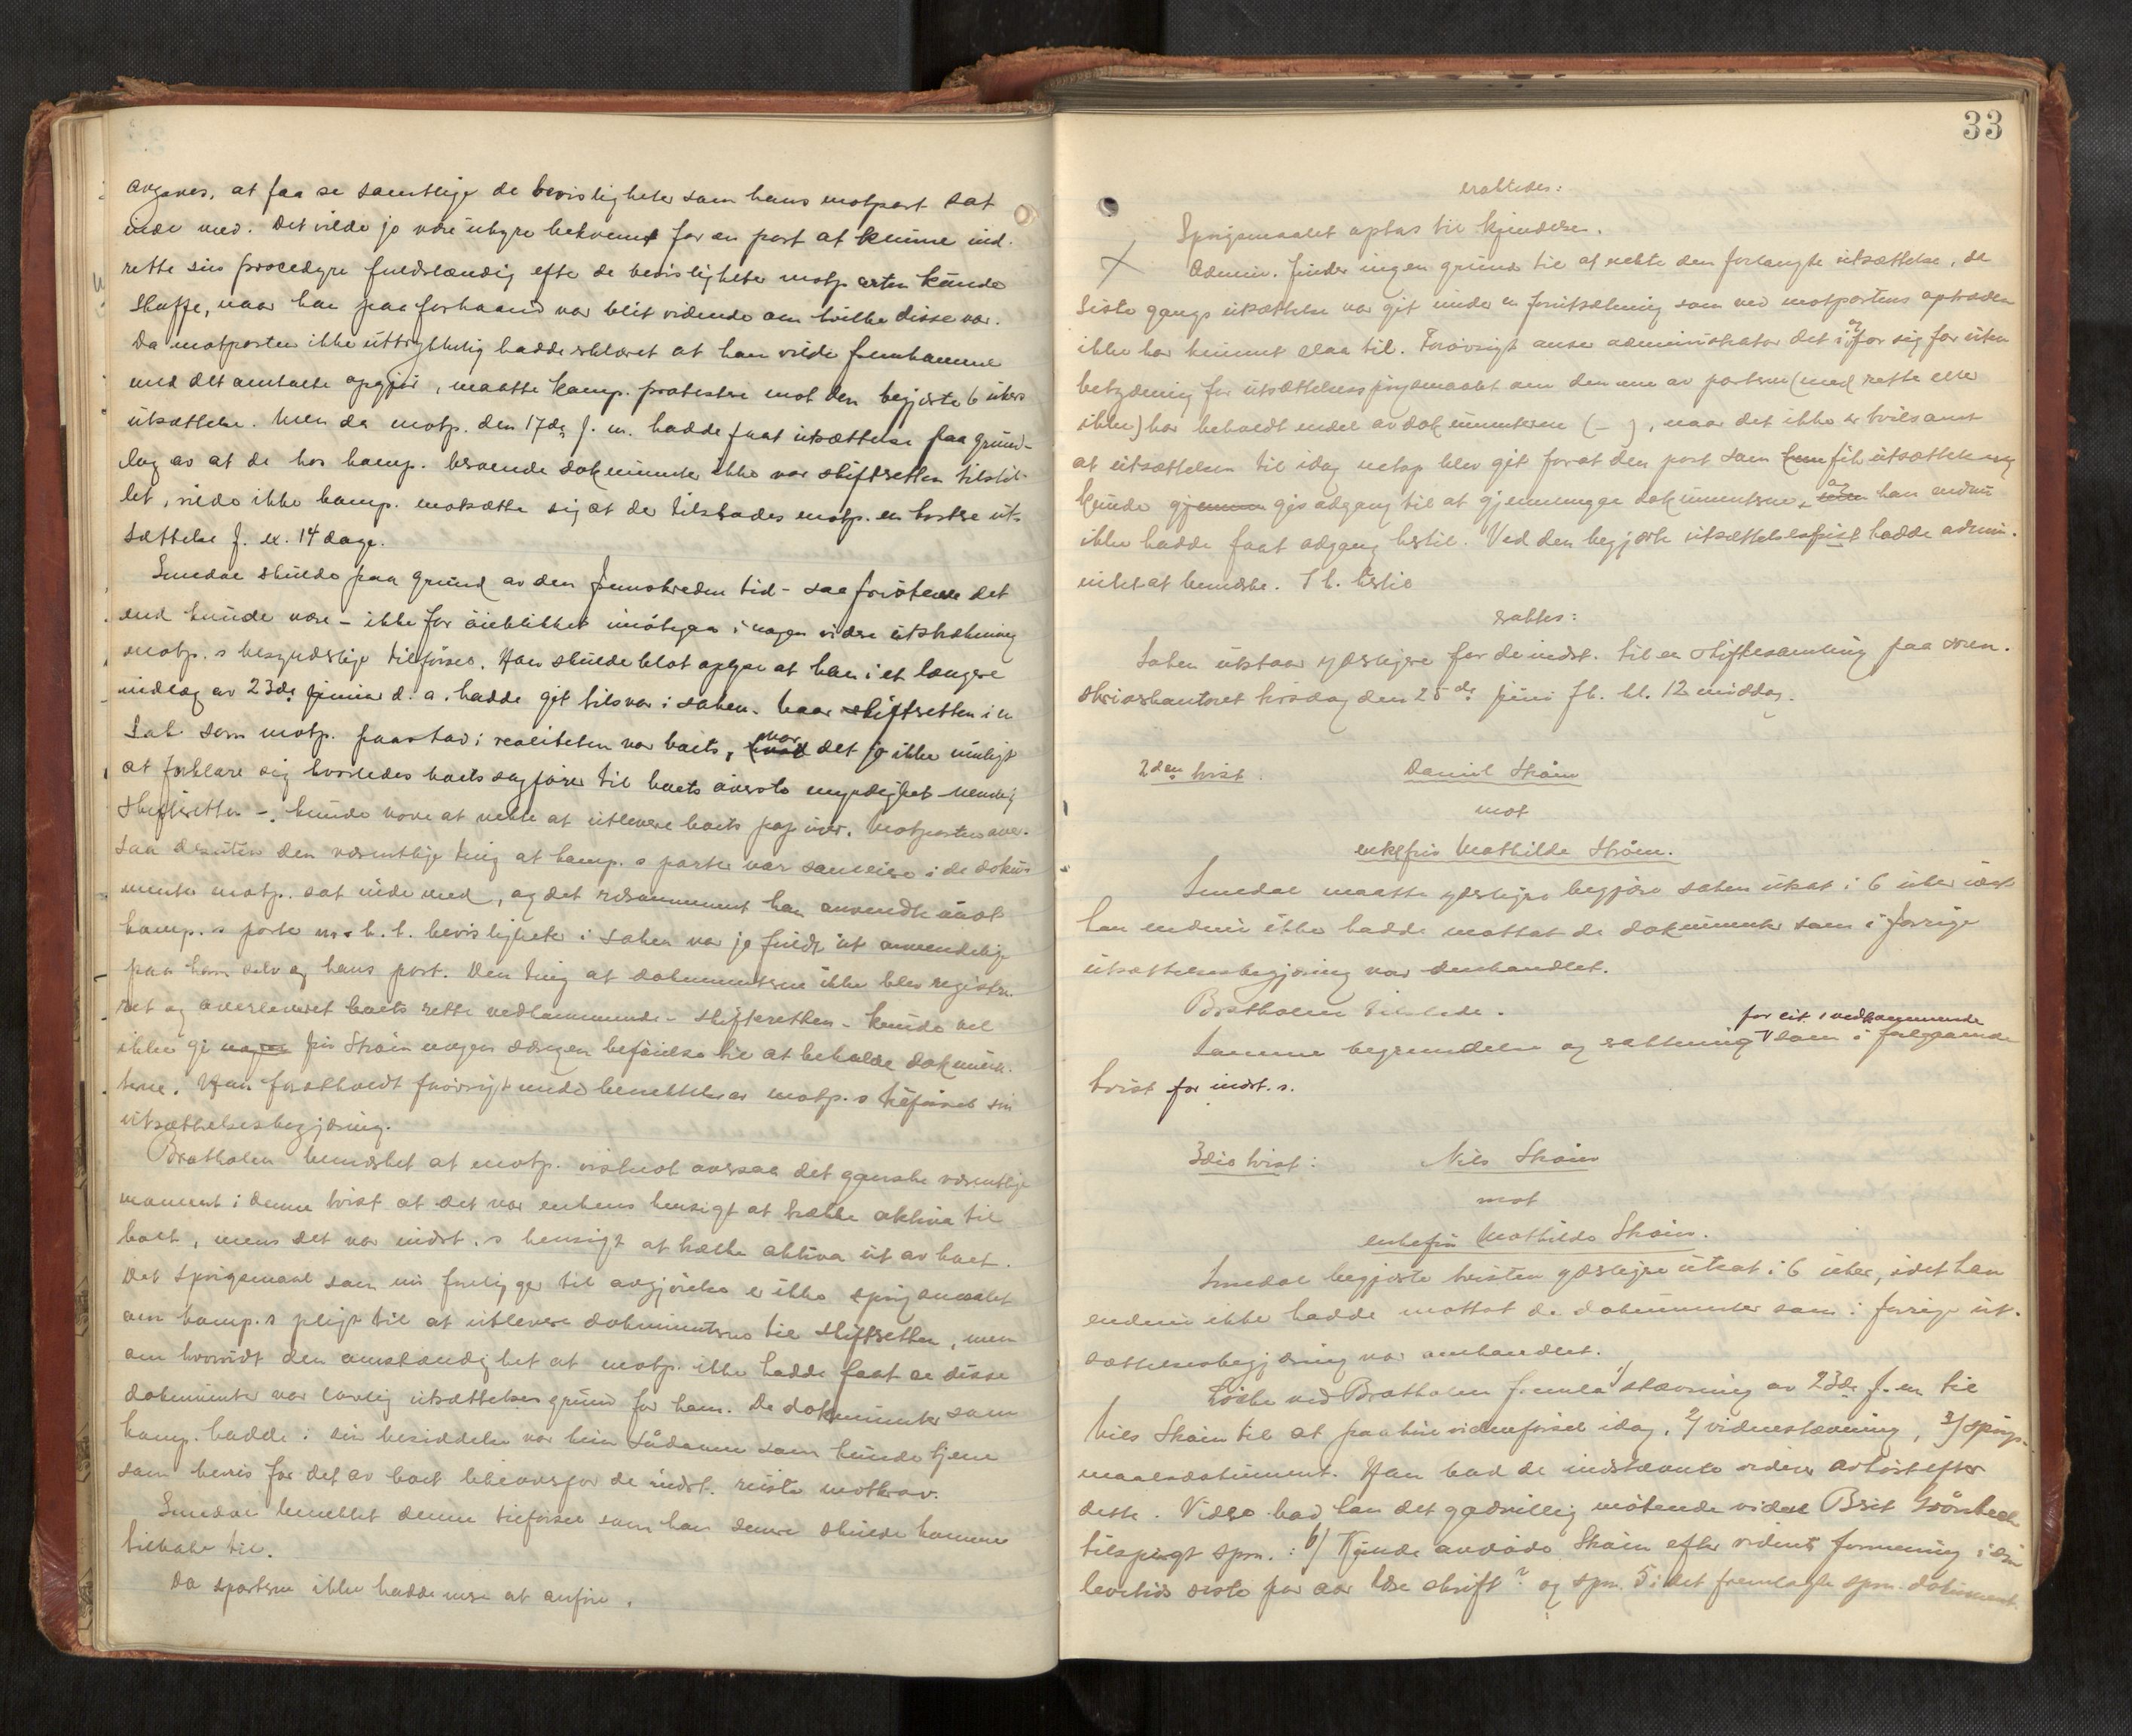 avgaves, at faa se samtlige de bevisligheter som hans motpart sat
inde med. Det vilde jo være uhyre bekvemt for en part at kunne ind-
rette sin procedyre fuldstændig efter de bevisligheter motparten kunde
skaffe, naar han paa forhaand var blit vidende om hvilke disse var.
Da motparten ikke uttrykkelig hadde erklæret at han vilde fremkomme
med det omtalte opgjør, maatte komp. protestere mot den begjærte 6 ukers
utsættelse. Men da motp. den 17de f. m. hadde faat utsættelse paa grund-
lag av at de hos komp. beroende dokumenter ikke var skifteretten tilstil-
let, vilde ikke komp. motsætte sig at der tilstodes motp. en kortere ut-
sættelse f. ex. 14 dage.
Smedal skulde paa grund av den fremskreden tid - saa fristende det
end kunde være - ikke for øieblikket imøtegaa i nogen videre utstrækning
motp.s besynderlige tilførsel. Han skulde blot oplyse at han i et længere
indlæg av 23de januar d. a. hadde git tilsvar i saken. Naar skifteretten i en
sak som motp. paastod i realiteten var boets, var det jo ikke muligt
at forklare sig hvorledes boets sagfører til boets øverste myndighet - nemlig
skifteretten -, kunde vove at nekte at utlevere boets papirer. Motparten over-
saa desuten den væsentlige ting at komp.s parter var sameiere i de doku-
menter motp. sat inde med, og det ræsonnement han anvendte mot
komp.s parter m. h. t. bevisligheter i saken var jo fuldt ut anvendelig
paa ham selv og hans part. Den ting at dokumenterne ikke blev registre-
ret og overleveret boets rette vedkommende - skifteretten - kunde vel
ikke gi fru Strøm nogen særegen beføielse til at beholde dokumen-
terne. Han fastholdt forøvrigt under benektelse av motp.s tilførsel sin
utsættelsesbegjæring.
Bratholm bemerket at motp. vistnok overser det ganske væsentlige
moment i denne tvist at det var enkens hensigt at trække aktiva til
boet, mens det var indst.s hensigt at trække aktiva ut av boet.
Det spørgsmaal som nu foreligger til avgjørelse er ikke spørgsmaalet
om komp.s pligt til at utlevere dokumenterne til skifteretten, men
om hvorvidt den omstændighet at motp. ikke hadde faat se disse
dokumenter var lovlig utsættelsesgrund for ham. De dokumenter som
komp. hadde i sin besiddelse var kun sådanne som kunde tjene
som bevis for det av boet likeoverfor de indst. reiste motkrav.
Smedal benektet denne tilførsel som han senere skulde komme
tilbake til.
Da parterne ikke hadde mere at anføre,
33
ersattes:
Spørgsmaalet optas til kjendelse.
Admin. finder ingen grund til at nekte den forlangte utsættelse, da
siste gangs utsættelse var git under en forutsætning som ved motpartens optræden
ikke har kunnet slaa til. Forøvrigt anser administrator det i og for sig for uten
betydning for utsættelsesspørgsmaalet om den ene av parterne (med rette eller
ikke) har beholdt endel av dokumenterne ( - ), naar det ikke er tvilsomt
at utsættelsen til idag netop blev git forat den part som fik utsættelsen
kunde gis adgang til at gjennemgaa dokumenterne, og han endnu
ikke hadde faat adgang hertil. Ved den begjærte utsættelsesfrist hadde admin.
intet at bemerke. I h. hertil
sattes:
Saken utstaar yderligere for de indst. til en skiftesamling paa soren-
skriverkontoret tirsdag den 25de juni fk. kl. 12 middag.
2den tvist. Daniel Strøm
mot
enkefru Mathilde Strøm.
Smedal maatte yderligere begjære saken utsat i 6 uker idet
han endnu ikke hadde mottat de dokumenter som i forrige
utsættelsesbegjæring var omhandlet.
Bratholm tilstede.
Samme begrundelse og saltning for cit.s vedkommende som i foregaaende
tvist for indst.s.
3die tvist: Nils Strøm
mot
enkefru Mathilde Strøm.
Smedal begjærte tvisten yderligere utsat i 6 uker, idet han
endnu ikke hadde mottat de dokumenter som i forrige ut-
sættelsesbegjæring var omhandlet.
ved Bratholm freml. 1/ stævning av 23de f. m. til
Nils Strøm til at paahøre vidneførsel idag, 2/ vidnestævning, 3/ spørgs-
maalsdokument. Han bad de indstævnte vidner avhørt efter
dette. Videre bad han det godvillig møtende vidne Brit
tilspurgt spm.: 6) Kunde avdøde Strøm efter vidnets formening i sin
levetids siste par aar læse skrift? og spm. 5 i det fremlagte spm. dokument.